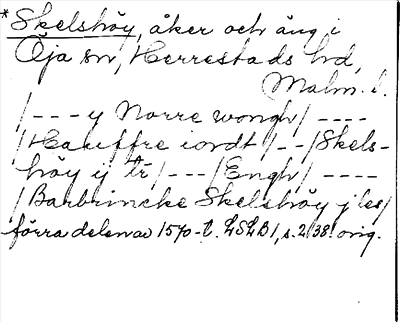 * Skelshöy, åker och äng i
Öja sn, Herrestads hd,
Malm. l.
/---- y Norre wongh/----
/Hauffre iordt/--/Skels-
höy ij tr/---/Engh/----
/Barbrincke Skelshöy j les/
förra delen av 1570-t. LSLB1, s. 238. orig.